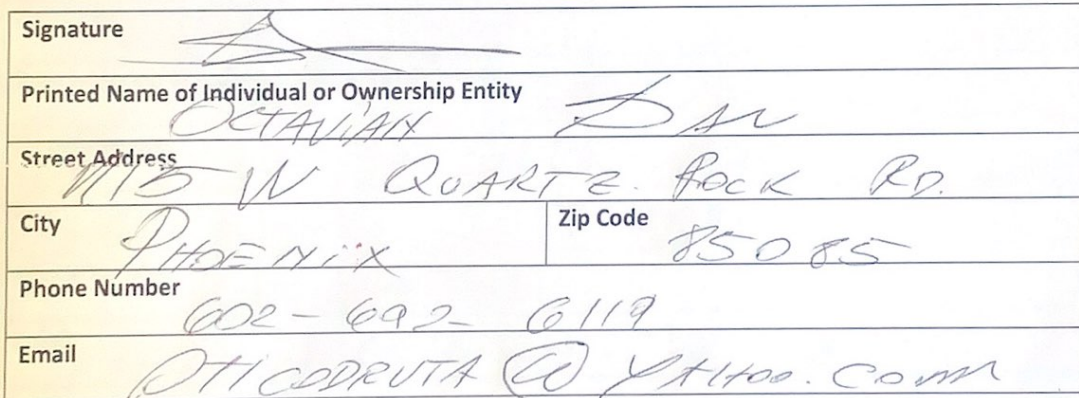 Signature
Printed Name of Individual or Ownership Entity
OCTAVIAN DAN
Street Address
W QUARTZ ROCK RD.
City
PHOENIX
Zip Code
85085
Phone Number
602-692-6119
Email
OTICODRUTA@YAHOO.COM